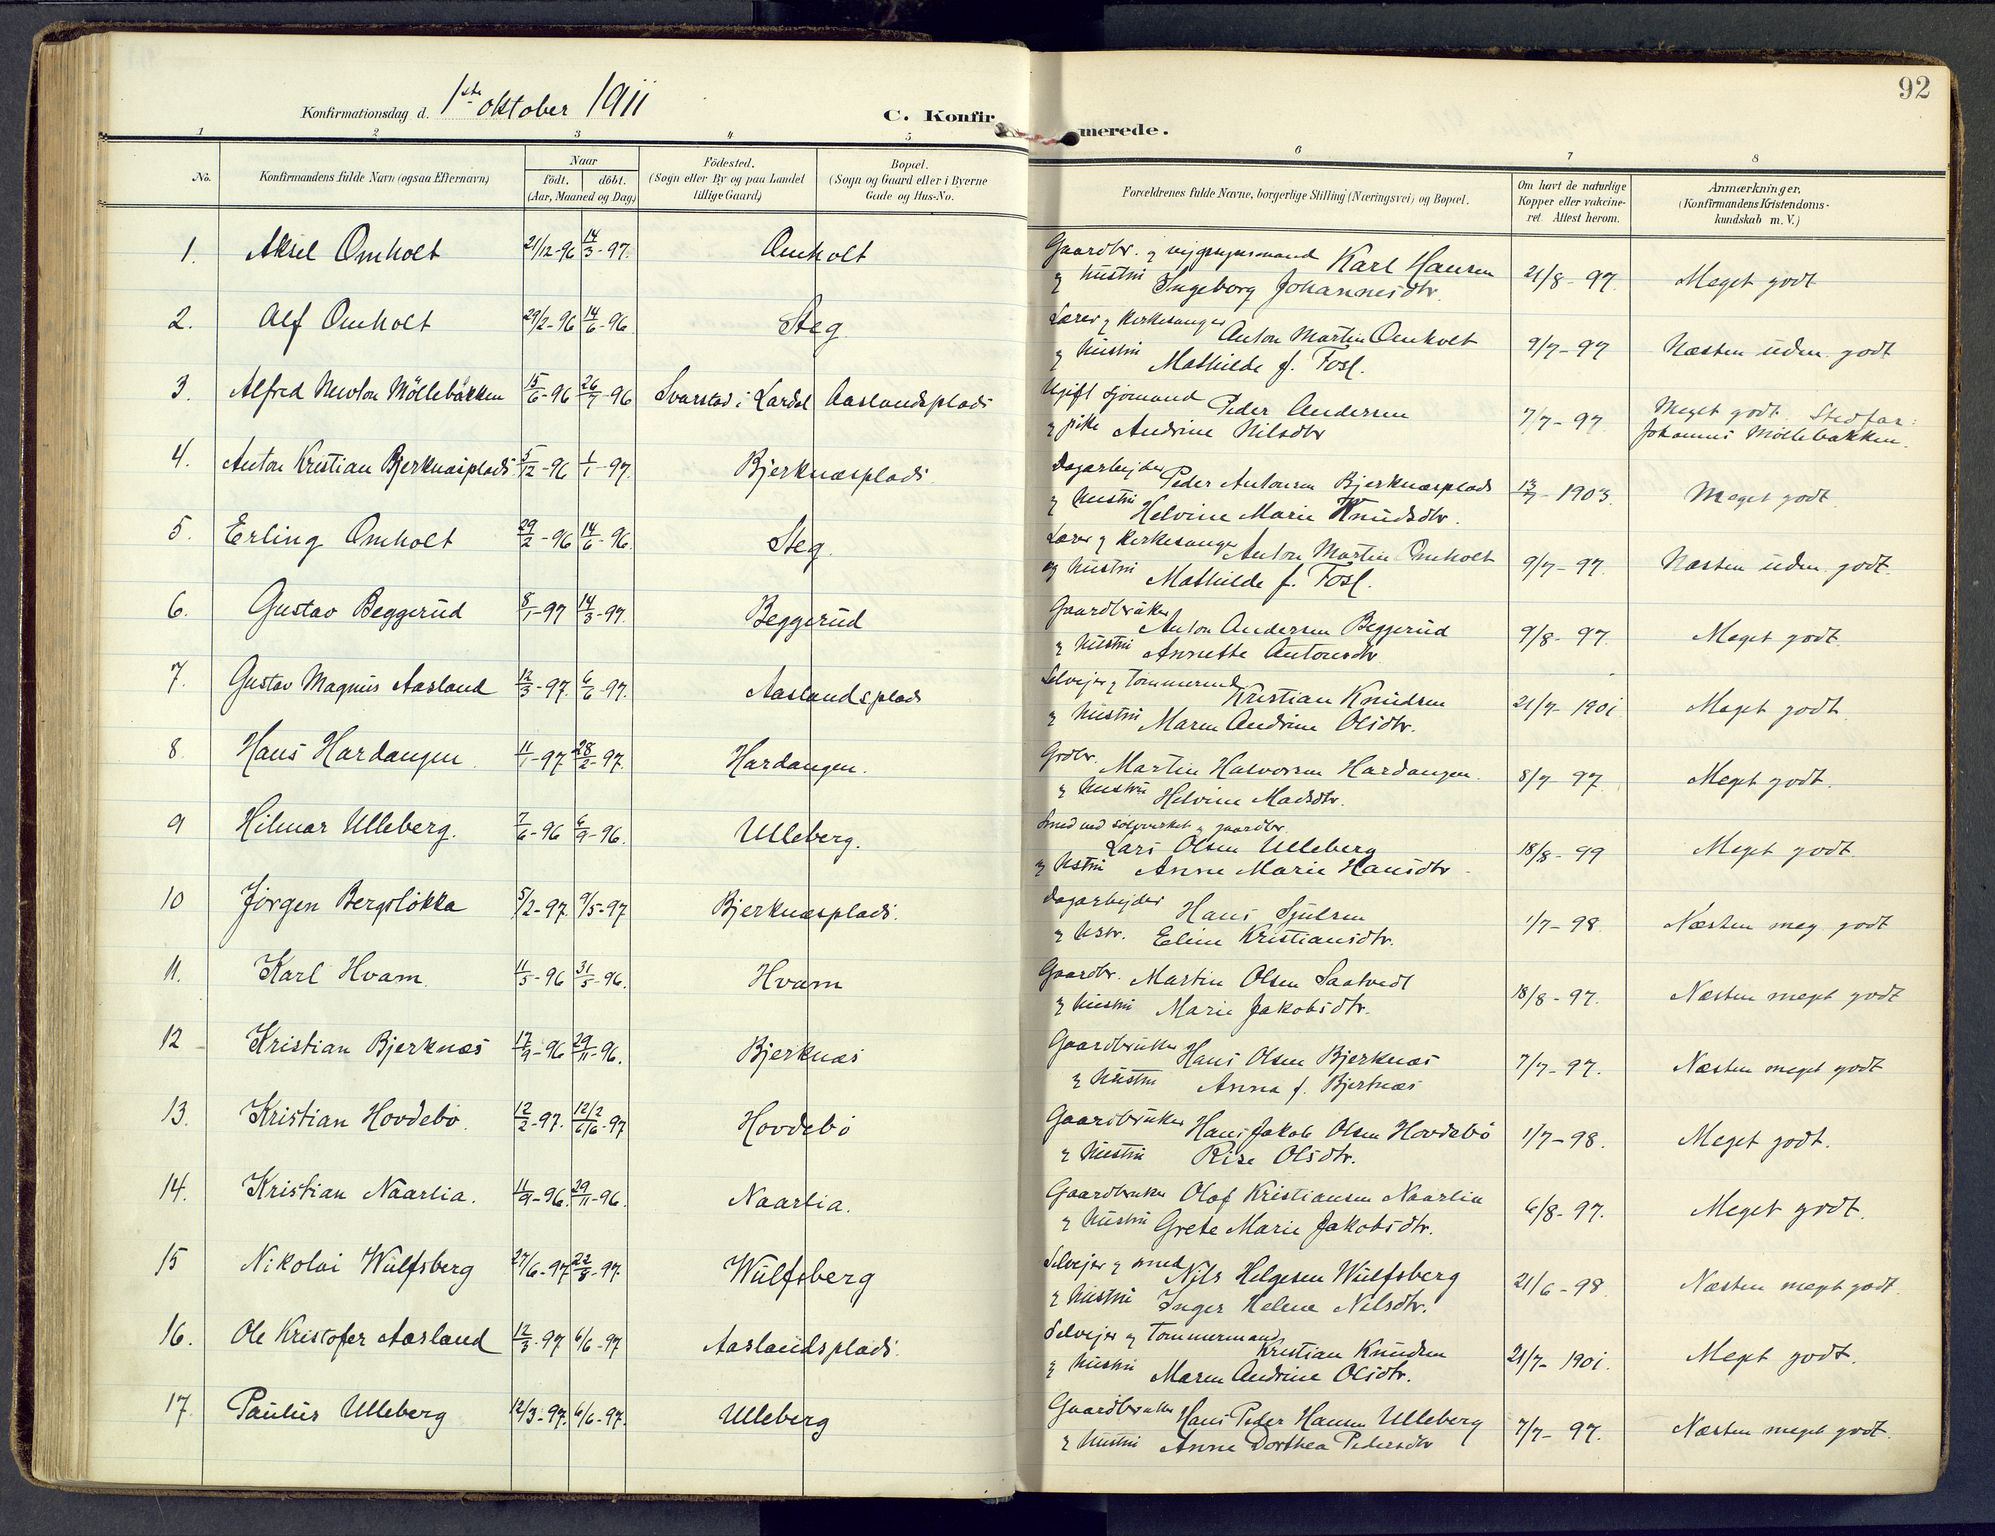 92
Konfirmationsdag d. 1ste oktober 1911
C. Konfirmerede.
1 2 3 4 5 6 7 8
No.
Konfirmandens fulde Navn (ogsaa Efternavn)
Naar
födt. döbt.
(Aar, Maaned og Dag)
Födested.
(Sogn eller By og paa Landet
tillige Gaard)
Bopæl.
(Sogn og Gaard eller i Byerne
Gade og Hus-No.
Forældrenes fulde Navne, borgerlige Stilling (Næringsvei) og Bopæl.
Om havt de naturlige
Kopper eller vakcine-
ret. Attest herom.
Anmærkninger.
(Konfirmandens Kristendoms-
kundskab m. V.)
1. Aksel Omholt 21/12-96 14/3-97. Omholt Gaardbr. og Karl Hansen
og Hustru Ingeborg Johannesdtr. 21/8-97. Meget godt
2. Alf Omholt 29/2-96 14/6-96. Steg. Lærer og Kirkesanger Anton Martin Omholt
og Hustru Mathilde f. Fosl. 9/7-97 Næsten udm. godt
3. Alfred Newton Möllebakken 15/6-96 26/7-96 Svarstad i Lardal Aaslandsplads Ugift Sjömand Peder Andersen
og pike Andrine Nilsdtr 7/7-97 Meget godt. Stedfar:
Johannes Möllebakken.
4. Anton Kristian Bjerknæsplads 5/12-96 1/1-97. Bjerknæsplads. Dagarbejder Peder Antonsen Bjerknæsplads
og Hustru Helvine Marie Knudsdtr. 13/7-1903. Meget godt
5. Erling Omholt 29/2-96 14/6-96. Steg. Lærer og Kirkesanger Anton Martin Omholt
og Hustru Mathilde f. Fosl. 9/7-97. Næsten udm. godt.
6. Gustav Beggerud 8/1-97 14/3-97. Beggerud Gaardbruker Anton Andersen Beggerud
og Hustru Annette Antonsdtr. 9/8-97. Meget godt.
7. Gustav Magnus Aasland 12/3-97. 6/6-97. Aaslandsplads Selvejer og Tømmermand Kristian Knudsen
og Hustru Maren Andrine Olsdtr. 21/7-1901 Meget godt.
8. Hans Hardangen 11/1-97 28/2-97. Hardangen. Grdbr. Martin Halvorsen Hardangen.
og Hustru Helvine Madsdtr. 8/7-97. Meget godt.
9 Hilmar Ulleberg. 7/6-96 6/9-96. Ulleberg. Smed ved sølvverket og gaardbr.
Lars Olsen Ulleberg
og Hstru Anne Marie Hansdtr. 18/8-99 Meget godt
10 Jörgen Bergslökka 5/2-97. 9/5-97 Bjerknæsplads. Dagarbejder Hans Sjulsen
og Hstr. Eline Kristiansdtr. 1/7-98. Næsten meg. godt
11. Karl Hvam. 11/5-96 31/5-96. Hvam Gaardbr. Martin Olsen Saatvedt
og Hustru Marie Jakobsdtr. 18/8-97. Næsten meget godt
12 Kristian Bjerknæs 17/9-96 29/11-96. Bjerknæs Gaardbruker Hans Olsen Bjerknæs
og Hustru Anna f. Bjerknæs 7/7-97. Næsten meget godt
13. Kristian Hovdebö. 12/2-97. 12/2 6/6-97 Hovdebö Gaardbruker Hans Jakob Olsen Hovdebö
og Hustru Rise Olsdtr. 1/7-98. Meget godt.
14. Kristian Naarlia. 11/9-96. 29/11-96. Naarlia. Gaardbruker Olaf Kristiansen Naarlia
og Hustru Grete Marie Jakobsdtr. 6/8-97. Meget godt.
15 Nikolai Wulfsberg 27/6-97 22/8-97. Wulfsberg Selvejer og smed Nils Helgesen Wulfsberg
og Hustru Inger Helene Nilsdtr. 21/6-98. Næsten meget godt.
16. Ole Kristofer Aasland 12/3-97 6/6-97 Aaslandsplads. Selvejer og Tømmermand Kristian Knudsen
og Hustru Maren Andrine Olsdtr. 21/7-1901. Meget godt.
17. Paulus Ulleberg 12/3-97. 6/6-97. Ulleberg Gaardbruker Hans Peder Hansen Ulleberg
og Hustru Anne Dorthea Pedersdtr 7/7-97. Næsten meget godt.